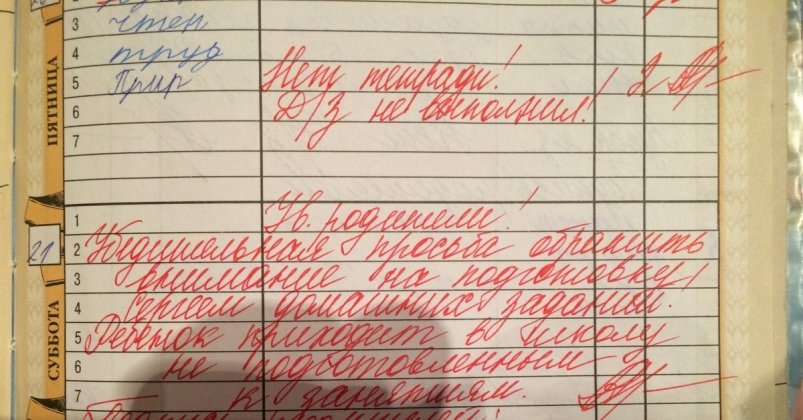 3 чтен
4 труд
ПЯТНИЦА
5 Прир Нет тетради! 2
6 Д/З не выполнил!
7
1 Ув. родители!
21
2 Убедительная просьба обратить
3 внимание на подготовку
СУББОТА
4 Сергеем домашних заданий!
5 Ребёнок приходит в школу
6 не подготовленным
7 к занятиям.